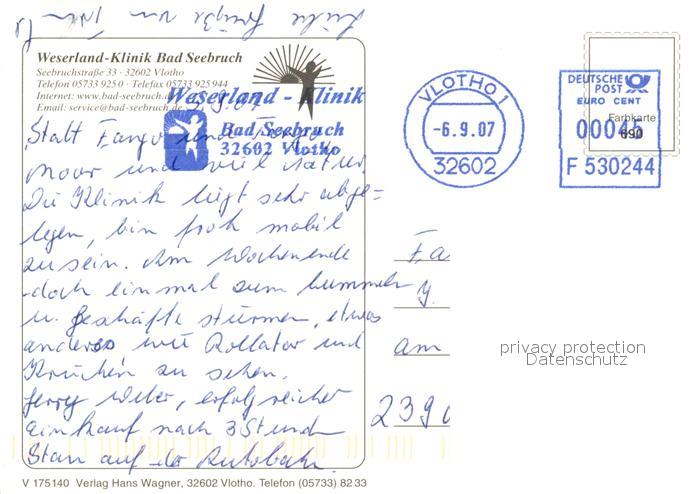 Weserland-Klinik Bad Seebruch
Seebruchstraße 33 · 32602 Vlotho
Telefon 05733 925 0 · Telefax 05733 925 944
Internet: www.bad-seebruch.de
Email: service@bad-seebruch.de
Weserland - Klinik
Bad Seebruch
32602 Vlotho
VLOTHO 1
-6.9.07
32602
DEUTSCHE POST
EURO CENT
00045
F 530244
Farbkarte
690
Statt Fango und
Moor und viel Natur.
Die Klinik liegt sehr abge=
legen, bin froh mobil
zu sein. Am Wochenende
doch einmal zum bummeln
u. Geschäfte stürmen, etwas
anderes wie Rollator und
Krücken zu sehen.
Jerry Weber, erfolgreicher
Einkauf nach 3 Stund
Stau auf der Autobahn.
Liebe Grüße von
Fa
am
239
privacy protection
Datenschutz
V 175140 Verlag Hans Wagner, 32602 Vlotho. Telefon (05733) 82 33